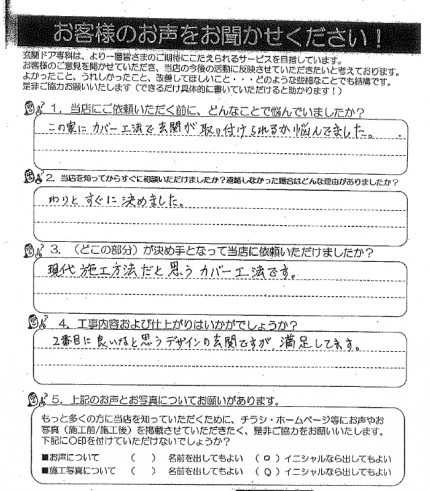 お客様のお声をお聞かせください！
玄関ドア専科は、より一層皆さまのご期待にこたえられるサービスを目指しています。
お客様のご意見を聞かせていただき、当店の今後の活動に反映させていただきたいと考えております。
よかったこと、うれしかったこと、改善してほしいこと・・・どのような些細なことでも結構です。
是非ご協力お願いいたします（できるだけ具体的に書いていただけると助かります！）
1．当店にご依頼いただく前に、どんなことで悩んでいましたか？
この家にカバー工法で玄関が取り付けられるか悩んでました。
2．当店を知ってからすぐに相談いただけましたか？連絡しなかった場合はどんな理由がありましたか？
わりとすぐに決めました。
3．（どこの部分）が決め手となって当店に依頼いただけましたか？
現代施工方法だと思うカバー工法です。
4．工事内容および仕上がりはいかがでしょうか？
2番目に良いなと思うデザインの玄関ですが、満足してます。
5．上記のお声とお写真についてお願いがあります。
もっと多くの方に当店を知っていただくために、チラシ・ホームページ等にお声やお
写真（施工前/施工後）を掲載させていただきたく、是非ご協力をお願いいたします。
下記に〇印を付けていただけないでしょうか？
■お声について （ ） 名前を出してもよい （○）イニシャルなら出してもよい
■施工写真について （ ） 名前を出してもよい （○）イニシャルなら出してもよい